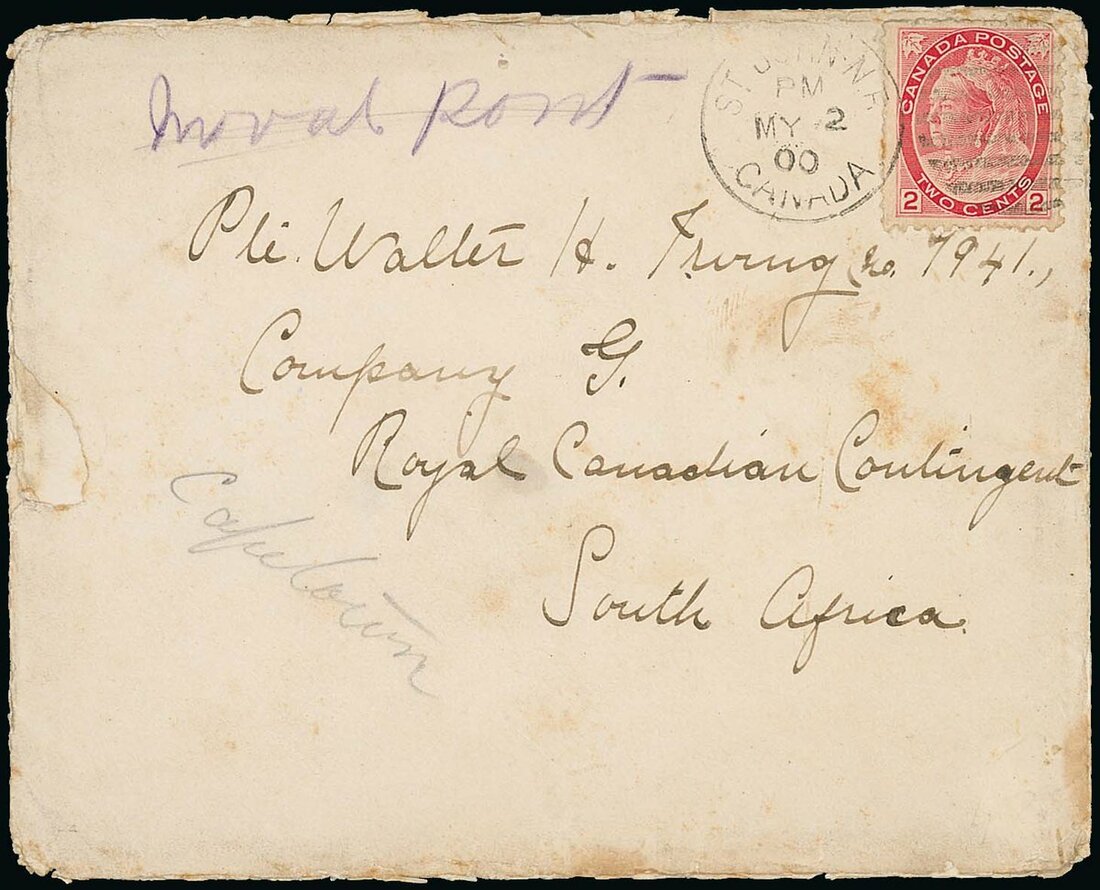 ST. JOHN. N.B.
PM
MY 2
00
CANADA
CANADA POSTAGE
2 TWO CENTS 2
Pte. Walter H. Irving No. 7941.,
Company G.
Royal Canadian Contingent
South Africa
Capetown